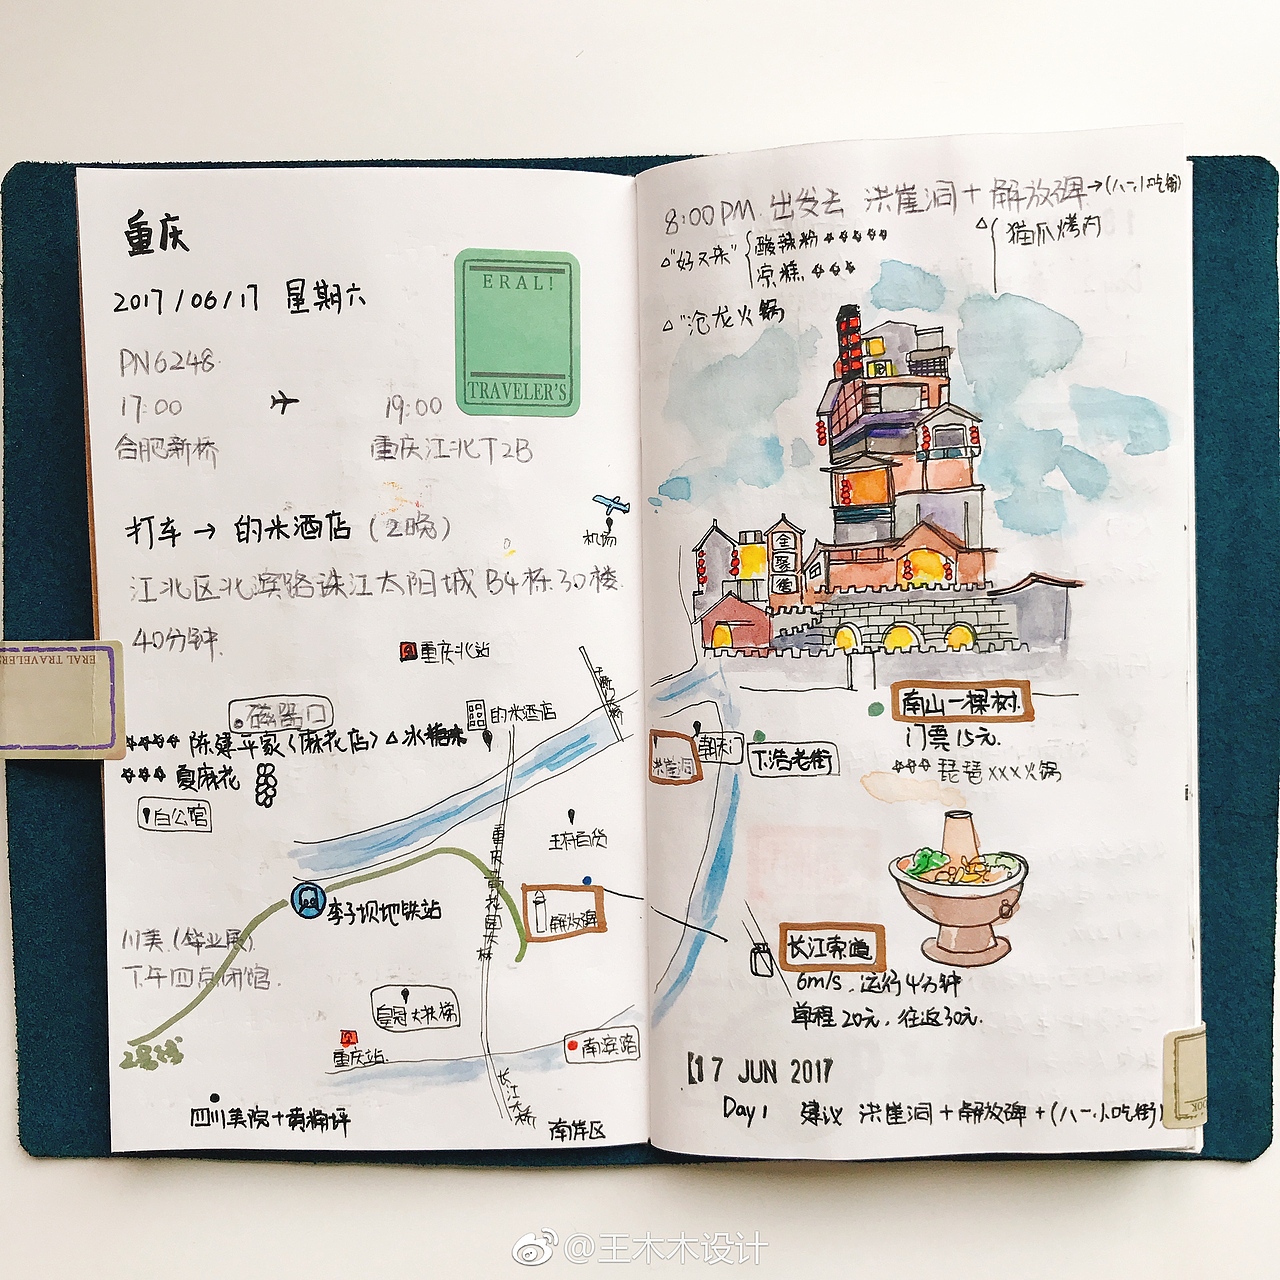 重庆
2017/06/17 星期六
PN6248
17:00 19:00
合肥新桥 重庆江北T2B
ERAL!
TRAVELER'S
打车→的米酒店(2晚)
机场
江北区北滨路珠江太阳城B4栋30楼
40分钟
重庆北站
磁器口
的米酒店
陈建平家(麻花店)△冰糖味
夏麻花
白公馆
王府百货
重庆黄花园大桥
李子坝地铁站
解放碑
川美(毕业展)
下午四点闭馆
皇冠大扶梯
2号线
重庆站
南滨路
四川美院+黄桷坪
长江大桥
南岸区
ERAL TRAVELER
8:00PM 出发去 洪崖洞+解放碑→(八一小吃街)
△猫爪烤肉
△"好又来"
酸辣粉
凉糕
△"沧龙火锅
南山一棵树
门票15元
琵琶xxx火锅
洪崖洞
朝天门
下浩老街
长江索道
6m/s,运行4分钟
单程20元,往返30元.
17 JUN 2017
Day1 建议 洪崖洞+解放碑+(八一小吃街)
@王木木设计